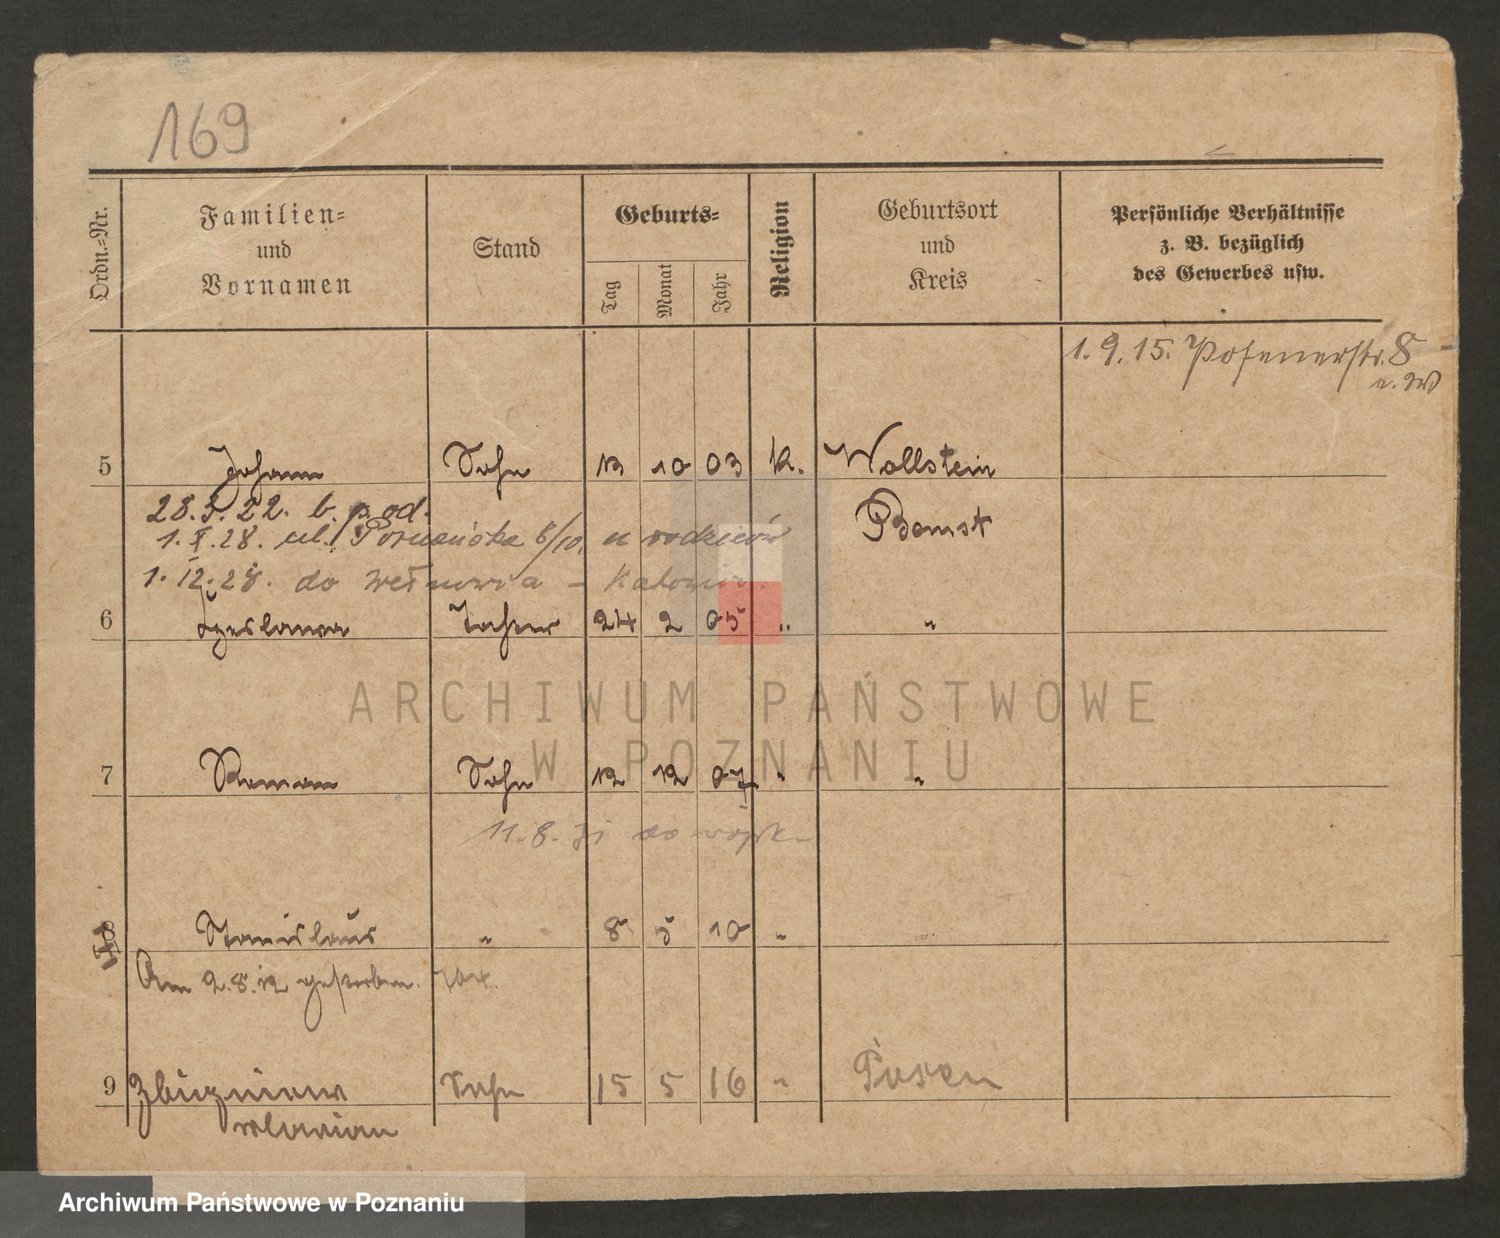 169
Ordn.-Nr.
Familien-
und
Vornamen
Stand
Geburts-
Tag
Monat
Jahr
Religion
Geburtsort
und
Kreis
Persönliche Verhältnisse
z. B. bezüglich
des Gewerbes usw.
1.9.15. Posenerstr. 8
5 Johann Sohn 13 10 03 k. Wollstein
28.3.22. b. p. od. Bomst
1.X.28. ul. Poznańska 8/10. u rodziców
1.12.28. do Wełnowca - Katowic.
6 Czeslawa Tochter 24 2 05 " "
7 Roman Sohn 12 12 07 " "
11.8.31 do wojska
8 Stanislaus " 8 5 10 "
Am 2.8.12 gestorben.
9 Zbigniew Sohn 15 5 16 " Posen
Marian
ARCHIWUM PAŃSTWOWE
W POZNANIU
Archiwum Państwowe w Poznaniu